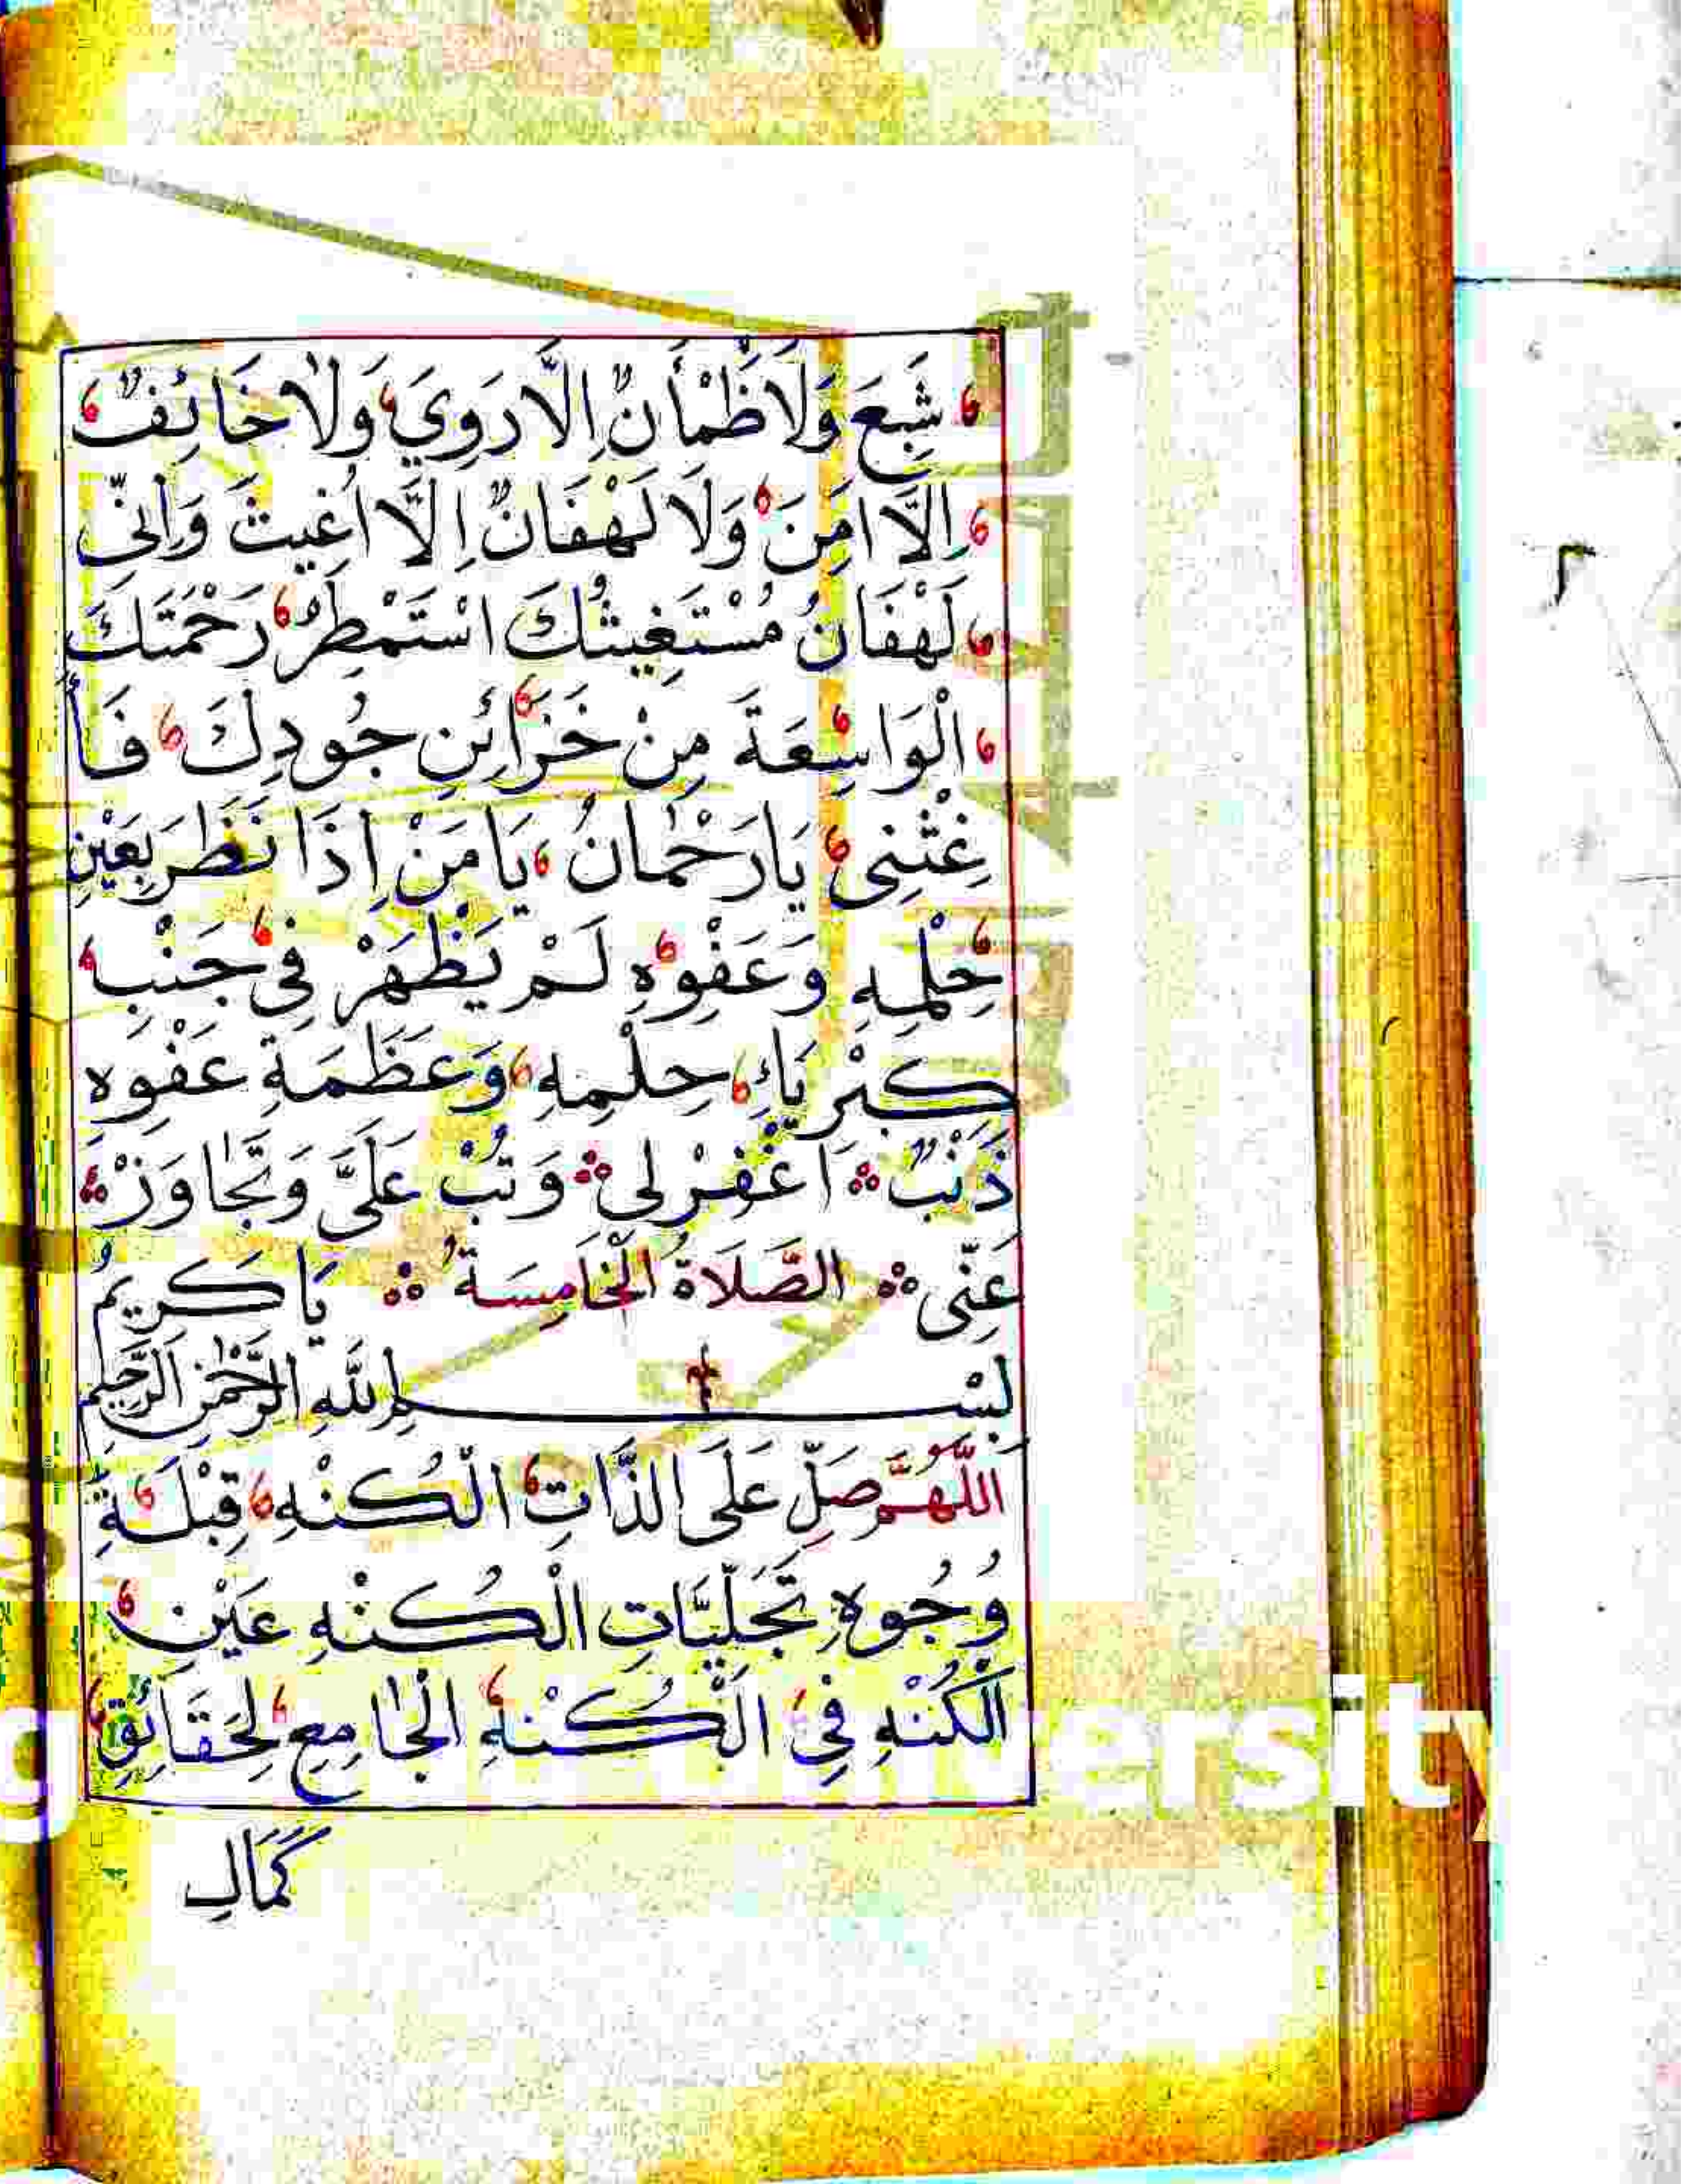 شَبِعَ وَلَا ظَمْأَنٌ اِلَّا رَوِيَ وَلَا خَائِفٌ
اِلَّا امِنَ وَلَا لَهْفَانٌ اِلَّا اُغِيثَ وَاِنِّى
لَهْفَانُ مُسْتَغِيثُكَ اسْتَمْطِرُ رَحْمَتَكَ
الْوَاسِعَةَ مِنْ خَزَائِنِ جُودِكَ فَأَ
غِثْنِى يَا رَحْمَانُ يَا مَنْ اِذَا نَظَرَ بِعَيْنِ
حِلْمِهِ وَعَفْوِهِ لَمْ يَظْهَرْ فِى جَنْبِ
كِبْرِيَاءِ حِلْمِهِ وَعَظَمَةِ عَفْوِهِ
ذَنْبٌ اَغْفِرْ لِى وَتُبْ عَلَىَّ وَتَجَاوَزْ
عَنِّى الصَّلَاةُ الْخَامِسَةُ يَا كَرِيمُ
بِسْمِ اللهِ الرَّحْمٰنِ الرَّحِيمِ
اللّٰهُمَّ صَلِّ عَلَى الذَّاتِ الْكُنْهِ قِبْلَةِ
وُجُوهِ تَجَلِّيَّاتِ الْكُنْهِ عَيْنِ
الْكُنْهِ فِى الْكُنْهِ الْجَامِعِ لِحَقَائِقِ
كَمَالِ
ersity